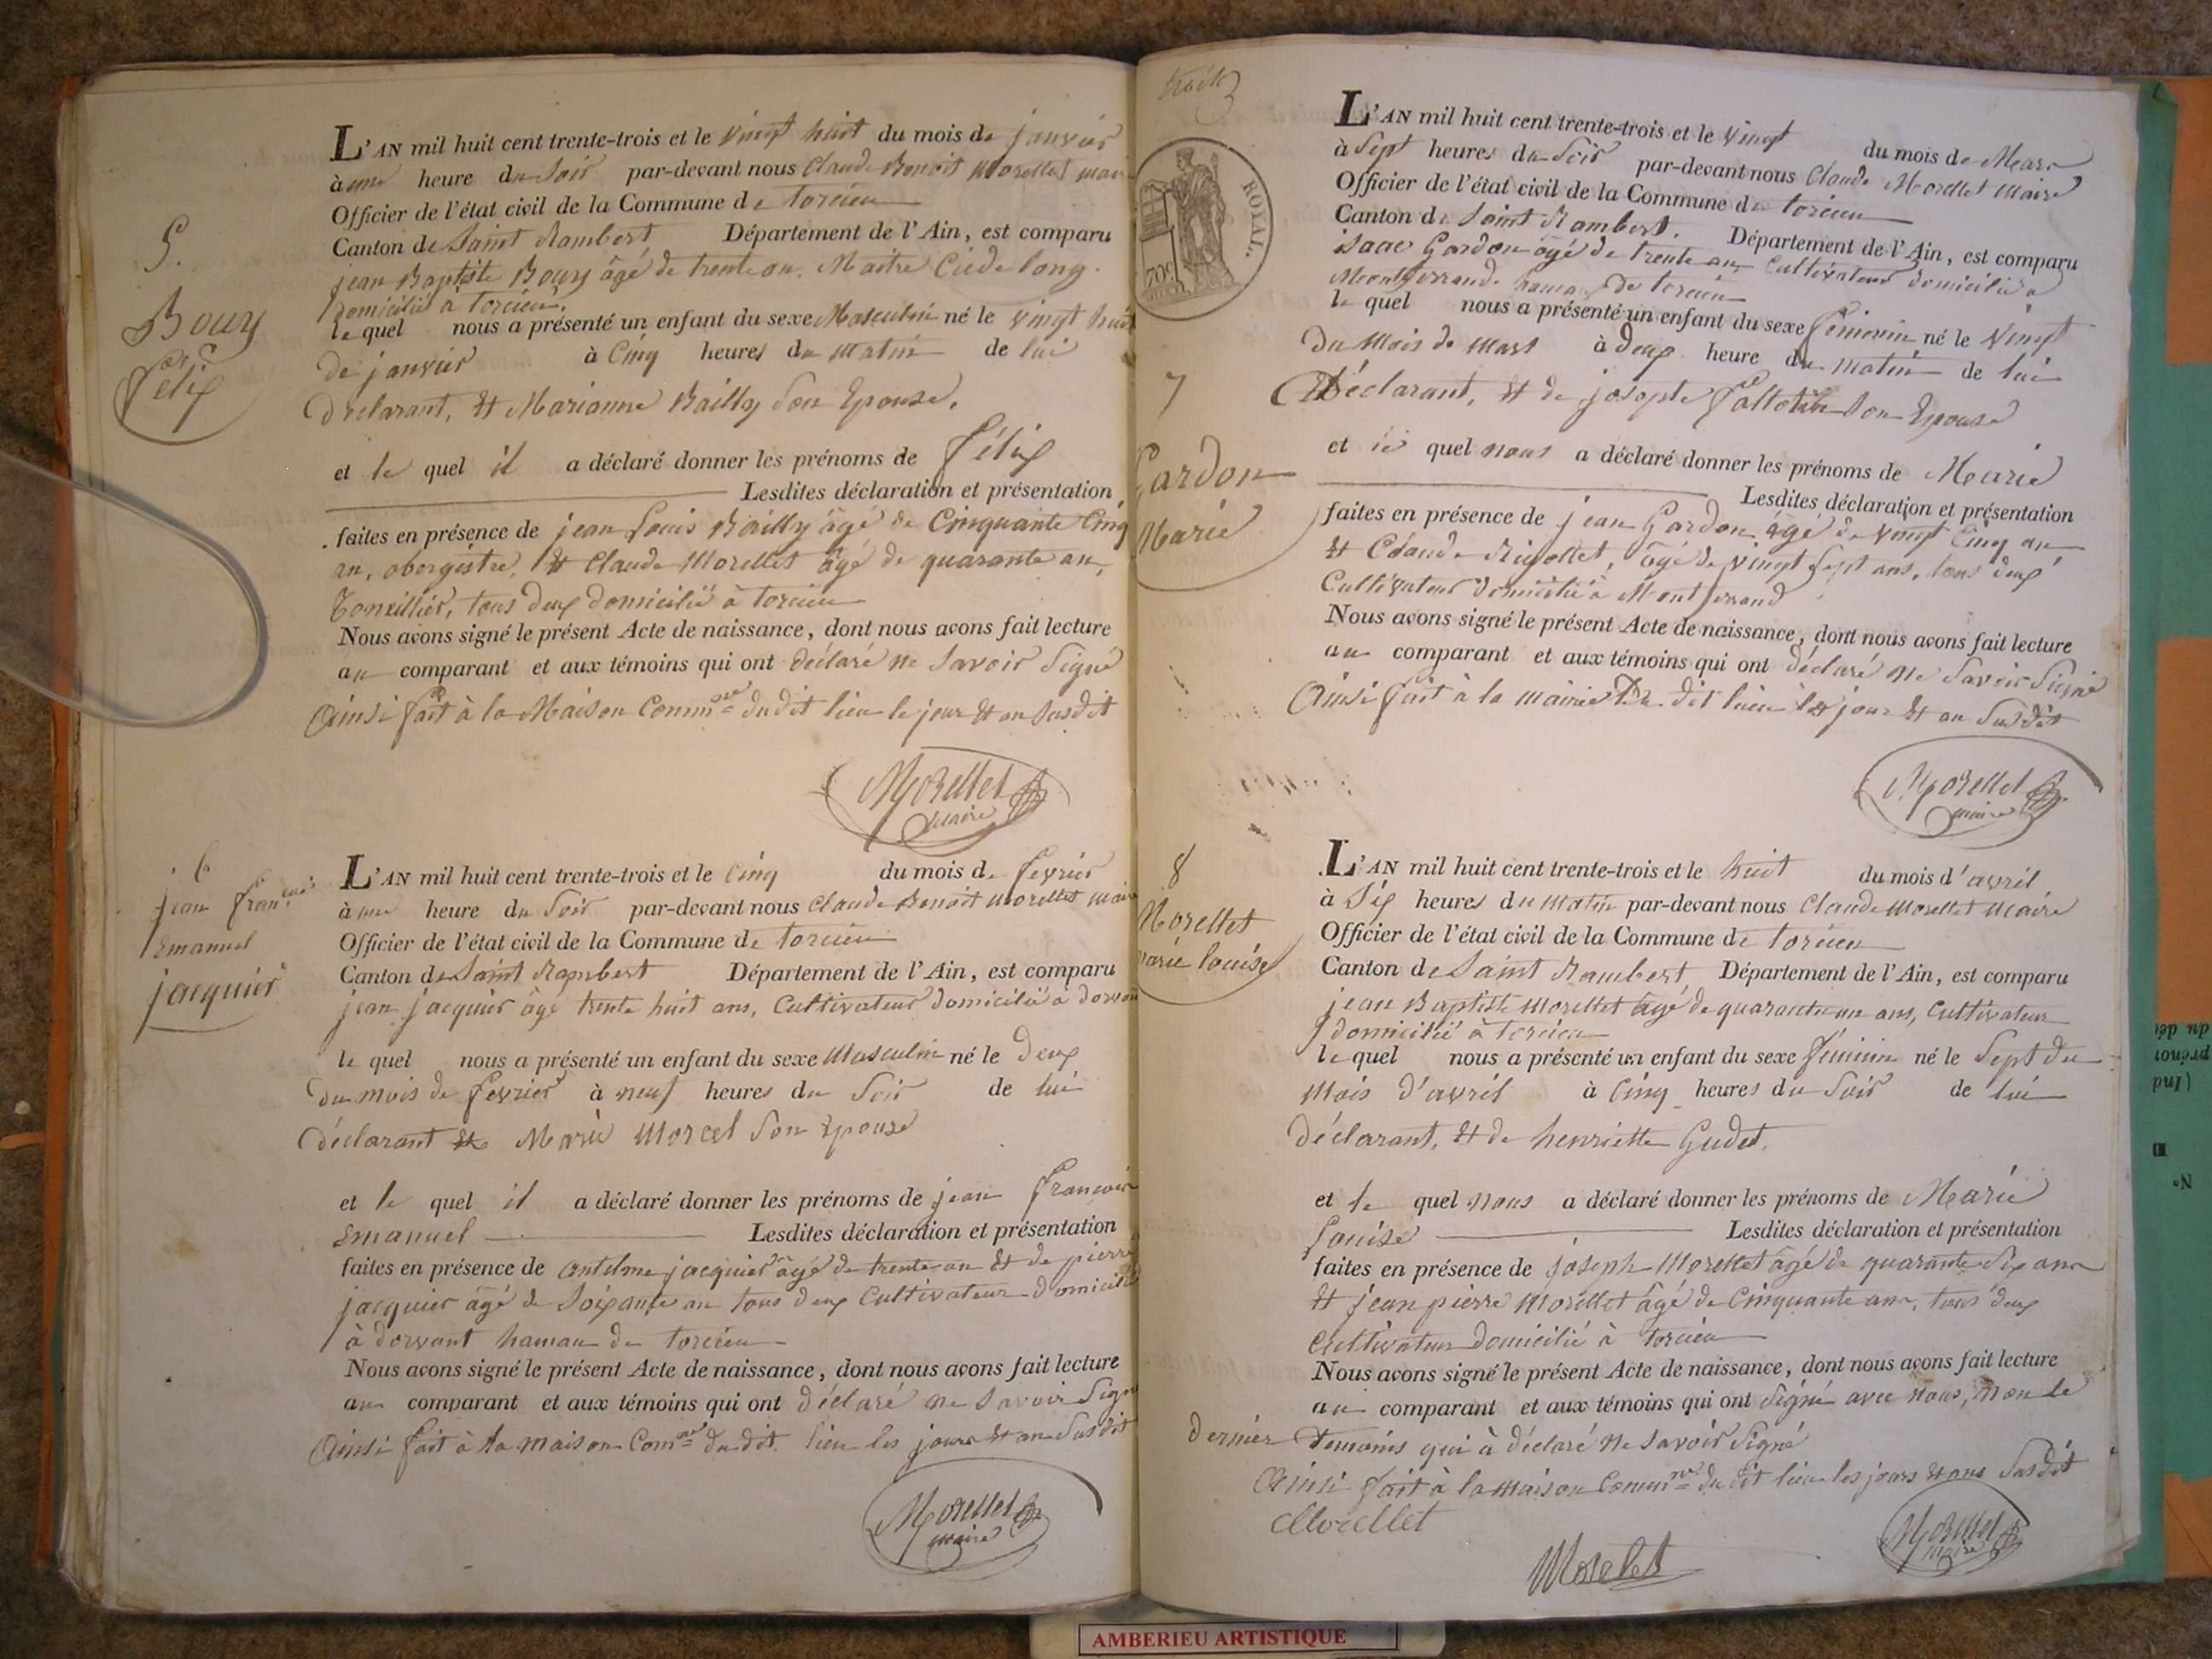 5.
Boury
Félix
L'AN mil huit cent trente-trois et le vingt huit du mois de janvier
à une heure du soir par-devant nous Claude Benoit Morellet mair
Officier de l'état civil de la Commune de torcieu
Canton de Saint Rambert Département de l'Ain, est comparu
jean Baptiste Boury âgé de trente an. Maitre Ciede long.
domicilié à torcieu.
le quel nous a présenté un enfant du sexe Masculin né le vingt huit
de janvier à Cinq heures du matin de lui
Déclarant, et Marianne Bailly Son Epouse.
et le quel il a déclaré donner les prénoms de Félix
Lesdites déclaration et présentation
faites en présence de jean Louis Bailly âgé de Cinquante Cinq
an, obergistre, et Claude Morellet âgé de quarante an,
Tonnillier, tous deux domicilié à torcieu
Nous avons signé le présent Acte de naissance, dont nous avons fait lecture
au comparant et aux témoins qui ont déclaré ne Savoir Signé
Ainsi fait à la Maison Commne du dit lieu le jour et an Susdit
Morellet
maire
6
jean Franois
Emanuel
jacquier
L'AN mil huit cent trente-trois et le Cinq du mois de fevrier
à une heure du Soir par-devant nous Claude Benoit Morellet mair
Officier de l'état civil de la Commune de torcieu
Canton de Saint Rambert Département de l'Ain, est comparu
jean jacquier âgé trente huit ans, Cultivateur domicilié à dorvan
le quel nous a présenté un enfant du sexe Masculin né le Deux
du mois de fevrier à neuf heures du Soir de lui
Déclarant et Marie Morcel Son Epouse
et le quel il a déclaré donner les prénoms de jean François
Emanuel Lesdites déclaration et présentation
faites en présence de antelme jacquier âgé de trente an et de pierre
jacquier âgé de Soixante an tous deux Cultivateur Domicilié
à dorvant hamau de torcieu
Nous avons signé le présent Acte de naissance, dont nous avons fait lecture
au comparant et aux témoins qui ont déclaré ne Savoir Signé
Ainsi fait à la maison Comne du dit lieu les jours et an Susdit
Morellet
maire
ROYAL.
70c
7
Gardon
Marie
L'AN mil huit cent trente-trois et le vingt du mois de Mars
à Sept heures du Soir par-devant nous Claude Morellet Maire
Officier de l'état civil de la Commune de torcieu
Canton de Saint Rambert. Département de l'Ain, est comparu
isaac Gardon âgé de trente ans Cultivateur domicilié à
Montferrand hamau de torcieu
le quel nous a présenté un enfant du sexe féminin né le vingt
du mois de mars à deux heure du matin de lui
Déclarant, et de josepte Son Epouse
et le quel nous a déclaré donner les prénoms de Marie
Lesdites déclaration et présentation
faites en présence de jean Gardon âgé de vingt Cinq an
et Claude Rigollet, âgé de vingt Sept ans, tous deux
Cultivateur domicilié à Montferrand
Nous avons signé le présent Acte de naissance, dont nous avons fait lecture
au comparant et aux témoins qui ont déclaré ne Savoir Signé
Ainsi fait à la mairie du dit lieu les jour et an Susdit
Morellet
maire
8
Morellet
Marie louise
L'AN mil huit cent trente-trois et le huit du mois d'avril
à Six heures du matin par-devant nous Claude Morellet Maire
Officier de l'état civil de la Commune de torcieu
Canton de Saint Rambert Département de l'Ain, est comparu
jean Baptiste Morellet âgé de quarante un ans, Cultivateur
domicilié à torcieu
le quel nous a présenté un enfant du sexe féminin né le Sept du
Mois d'avril à Cinq heures du Soir de lui
Déclarant, et de henriette Gudet.
et le quel nous a déclaré donner les prénoms de Marie
Louise Lesdites déclaration et présentation
faites en présence de joseph Morellet âgé de quarante Six ans
et jean pierre Morellet âgé de Cinquante ans, tous deux
Cultivateur domicilié à torcieu
Nous avons signé le présent Acte de naissance, dont nous avons fait lecture
au comparant et aux témoins qui ont Signé avec nous, non le
dernier temoins qui à déclaré ne Savoir Signé
Ainsi fait à la maison Commne du dit lieu les jours et ans Susdit
Morellet
Morelet
Morellet
maire
AMBERIEU ARTISTIQUE